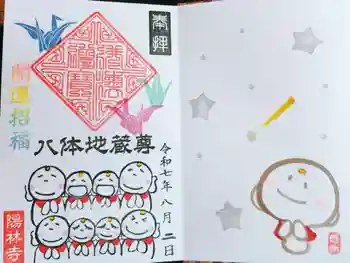 奉拝
開運招福
八体地蔵尊
令和七年八月二日
陽林寺